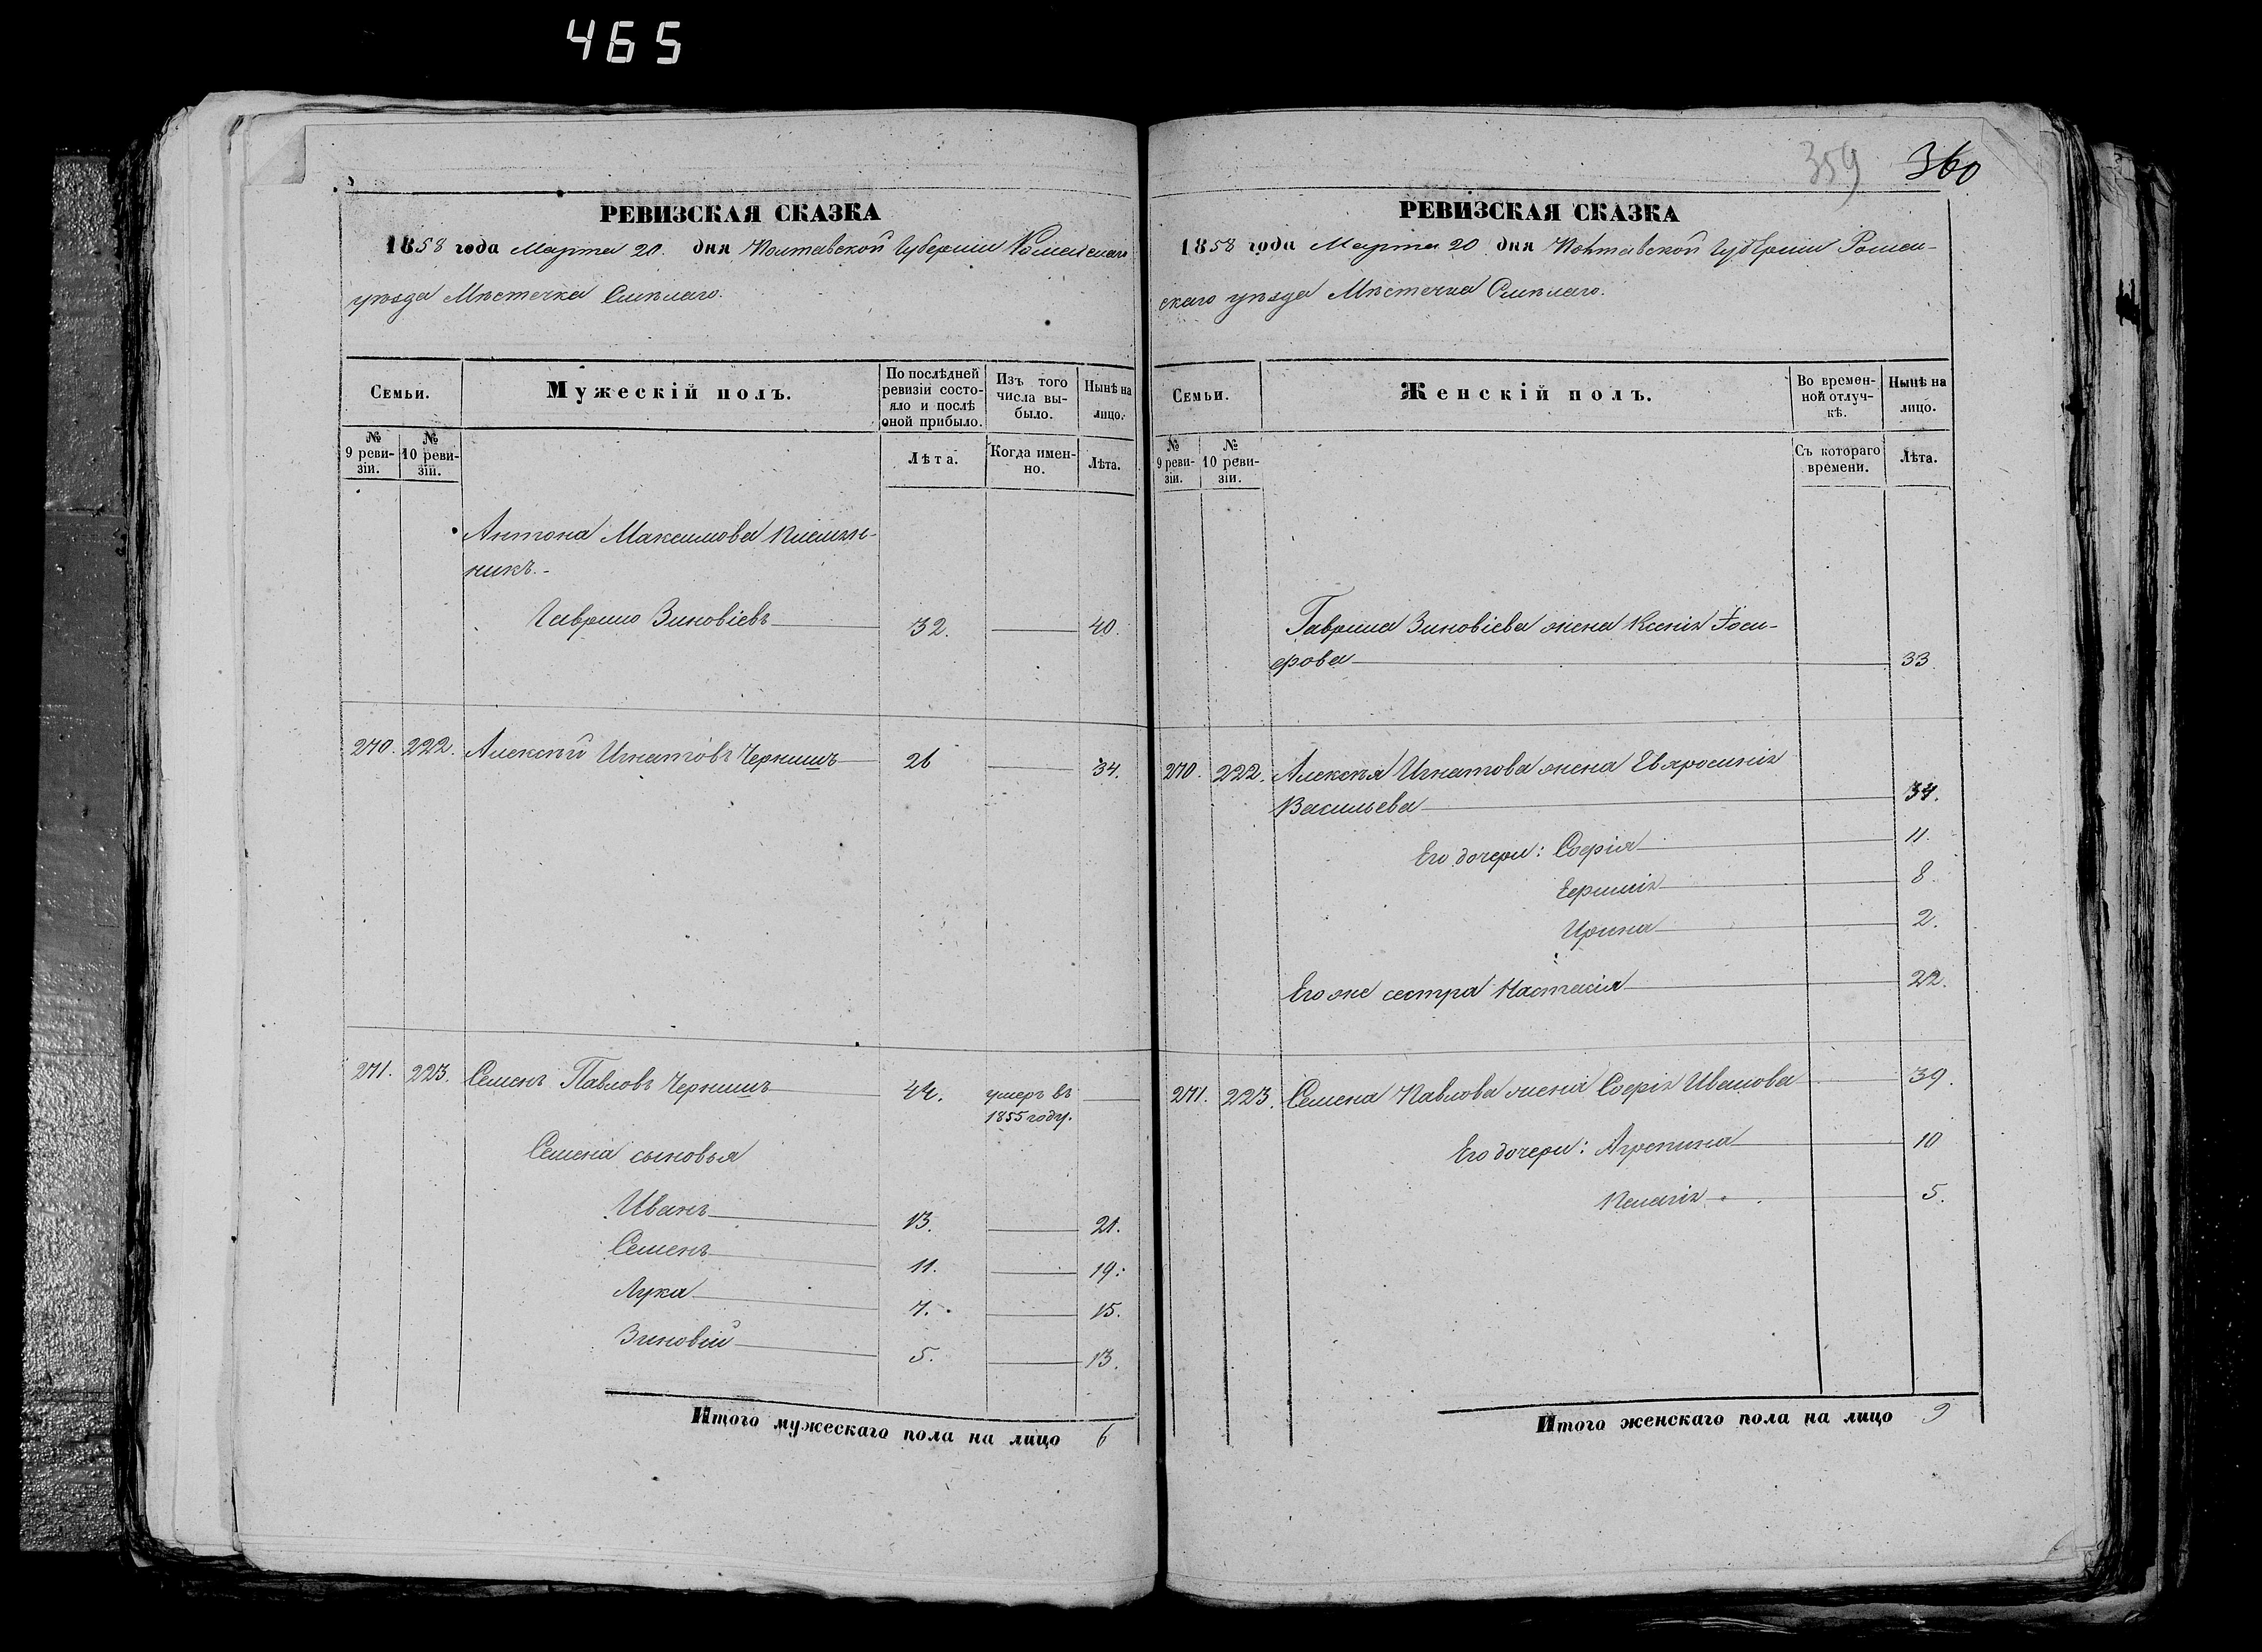 465
359 360
РЕВИЗСКАЯ СКАЗКА
1858 года Марта 20. дня Полтавской Губерніи Роменскаго
уѣзда Мѣстечка Смѣлаго.
Семьи.
Мужескій полъ.
По послѣдней ревизіи состояло и послѣ оной прибыло.
Изъ того числа выбыло.
Нынѣ на лицо.
№ 9 ревизіи.
№ 10 ревизіи.
Лѣта.
Когда именно.
Лѣта.
Антона Максимова
никъ.-
Гаврило Зиновіевъ 32. 40.
270. 222. Алексѣй Игнатовъ Чернишъ 26 34.
271. 223. Семенъ Павловъ Чернишъ 44. умеръ въ
1855 году.
Семена сыновья
Иванъ 13. 21.
Семенъ 11. 19.
Лука 7. 15.
Зиновій 5. 13.
Итого мужескаго пола на лицо 6
РЕВИЗСКАЯ СКАЗКА
1858 года Марта 20 дня Полтавской Губерніи Ромен-
скаго уѣзда Мѣстечка Смѣлаго.
Семьи.
Женскій полъ.
Во временной отлучкѣ.
Нынѣ на лицо.
№ 9 ревизіи.
№ 10 ревизіи.
Съ котораго времени.
Лѣта.
Гаврила Зиновіева жена Ксенія Іоси-
фова 33.
270. 222. Алексѣя Игнатова жена Евфросинія
Васильева 34.
Его дочери: Софія 11.
Ефимія 8.
Ирина 2.
Его же сестра Настасія 22.
271. 223. Семена Павлова жена Софія Иванова 39.
Его дочери: Агрепина 10
Пелагія 5.
Итого женскаго пола на лицо 9